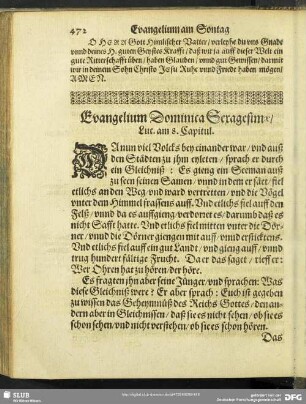 472 Evangelium am Sontag
O HERR Gott Himlischer Vatter / verleyhe du vns Gnade
vnnd deines H. guten Geystes Krafft / daß wir ja auff dieser Welt ein
gute Ritterschafft üben / haben Glauben / vnnd gut Gewissen / darmit
wir in deinem Sohn Christo Jesu Ruhe vnnd Friedt haben mögen /
AMEN.
Evangelium Dominica Sexagesimæ /
Luc. am 8. Capitul.
DA nun viel Volcks bey einander war / vnd auß
den Städten zu jhm eyleten / sprach er durch
ein Gleichniß: Es gieng ein Seeman auß
zu seen seinen Samen / vnnd in dem er säet / fiel
etlichs an den Weg / vnd ward vertretten / vnd die Vögel
vnter dem Himmel frassens auff. Vnd etlichs fiel auff den
Felß / vnnd da es auffgieng / verdorret es / darumb daß es
nicht Safft hatte. Vnd etlichs fiel mitten vnter die Dör-
ner / vnnd die Dörner giengen mit auff / vnd ersticktens.
Vnd etlichs fiel auff ein gut Landt / vnd gieng auff / vnnd
trug hundert fältige Frucht. Da er das saget / rieff er:
Wer Ohren hat zu hören / der höre.
Es fragten jhn aber seine Jünger / vnd sprachen: Was
diese Gleichniß were? Er aber sprach: Euch ist gegeben
zu wissen das Geheymnuß des Reichs Gottes / den an-
dern aber in Gleichnissen / daß sie es nicht sehen / ob sie es
schon sehen / vnd nicht verstehen / ob sie es schon hören.
Das
SLUB
DFG